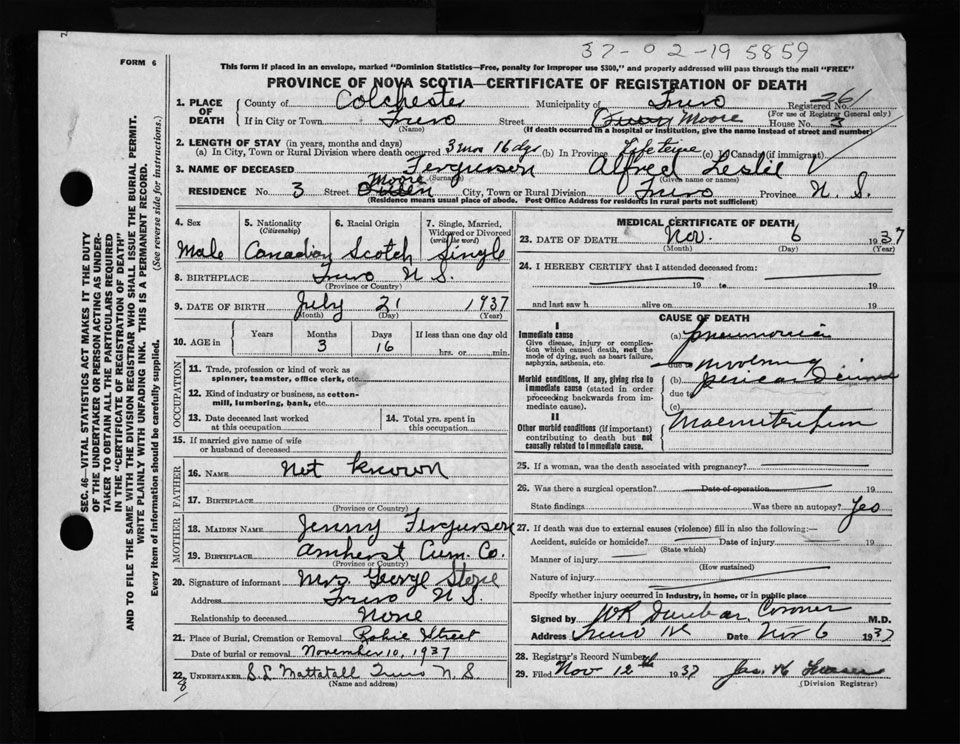 37-02-195859
FORM 6
This form if placed in an envelope, marked "Dominion Statistics—Free, penalty for improper use $300," and properly addressed will pass through the mail "FREE"
PROVINCE OF NOVA SCOTIA—CERTIFICATE OF REGISTRATION OF DEATH
1. PLACE OF DEATH
County of Colchester Municipality of Truro Registered No. 261
(For use of Registrar General only)
If in City or Town Truro Street Moore House No. 3
(Name) (If death occurred in a hospital or institution, give the name instead of street and number)
2. LENGTH OF STAY (in years, months and days)
(a) In City, Town or Rural Division where death occurred 3 mos 16 dys (b) In Province Lifetime (c) In Canada (if immigrant)
3. NAME OF DECEASED Ferguson Alfred Leslie
(Surname) (Given name or names)
RESIDENCE No. 3 Street Moore City, Town or Rural Division Truro Province N. S.
(Residence means usual place of abode. Post Office Address for residents in rural parts not sufficient)
4. Sex 5. Nationality (Citizenship) 6. Racial Origin 7. Single, Married, Widowed or Divorced (write the word)
Male Canadian Scotch Single
8. BIRTHPLACE Truro N S.
(Province or Country)
9. DATE OF BIRTH July 21 1937
(Month) (Day) (Year)
10. AGE in Years Months Days If less than one day old
3 16 hrs. or min.
OCCUPATION
11. Trade, profession or kind of work as spinner, teamster, office clerk, etc.
12. Kind of industry or business, as cotton-mill, lumbering, bank, etc.
13. Date deceased last worked at this occupation
14. Total yrs. spent in this occupation
15. If married give name of wife or husband of deceased
FATHER
16. NAME Not known
17. BIRTHPLACE
(Province or Country)
MOTHER
18. MAIDEN NAME Jenny Ferguson
19. BIRTHPLACE Amherst Cum. Co.
(Province or Country)
20. Signature of informant Mrs. George
Address Truro N S.
Relationship to deceased None
21. Place of Burial, Cremation or Removal Robie Street
Date of burial or removal November 10, 1937
22. UNDERTAKER S L Mattatall Truro N S.
(Name and address)
8
MEDICAL CERTIFICATE OF DEATH
23. DATE OF DEATH Nov. 6 1937
(Month) (Day) (Year)
24. I HEREBY CERTIFY that I attended deceased from:
19 to 19
and last saw h alive on 19
CAUSE OF DEATH
I
Immediate cause
Give disease, injury or complication which caused death, not the mode of dying, such as heart failure, asphyxia, asthenia, etc.
(a) Pneumonia
due to
Morbid conditions, if any, giving rise to immediate cause (stated in order proceeding backwards from immediate cause).
(b)
due to
(c)
II
Other morbid conditions (if important) contributing to death but not causally related to immediate cause.
25. If a woman, was the death associated with pregnancy?
26. Was there a surgical operation? Date of operation 19
State findings Was there an autopsy? Yes
27. If death was due to external causes (violence) fill in also the following:—
Accident, suicide or homicide? Date of injury 19
(State which)
Manner of injury
(How sustained)
Nature of injury
Specify whether injury occurred in industry, in home, or in public place
Signed by WR Dunbar Coroner M.D.
Address Truro Date Nov 6 1937
28. Registrar's Record Number
29. Filed Nov 12th 1937 Jas.
(Division Registrar)
SEC. 46—VITAL STATISTICS ACT MAKES IT THE DUTY
OF THE UNDERTAKER OR PERSON ACTING AS UNDER-
TAKER TO OBTAIN ALL THE PARTICULARS REQUIRED
IN THE "CERTIFICATE OF REGISTRATION OF DEATH"
AND TO FILE THE SAME WITH THE DIVISION REGISTRAR WHO SHALL ISSUE THE BURIAL PERMIT.
WRITE PLAINLY WITH UNFADING INK. THIS IS A PERMANENT RECORD.
Every item of information should be carefully supplied. (See reverse side for instructions.)